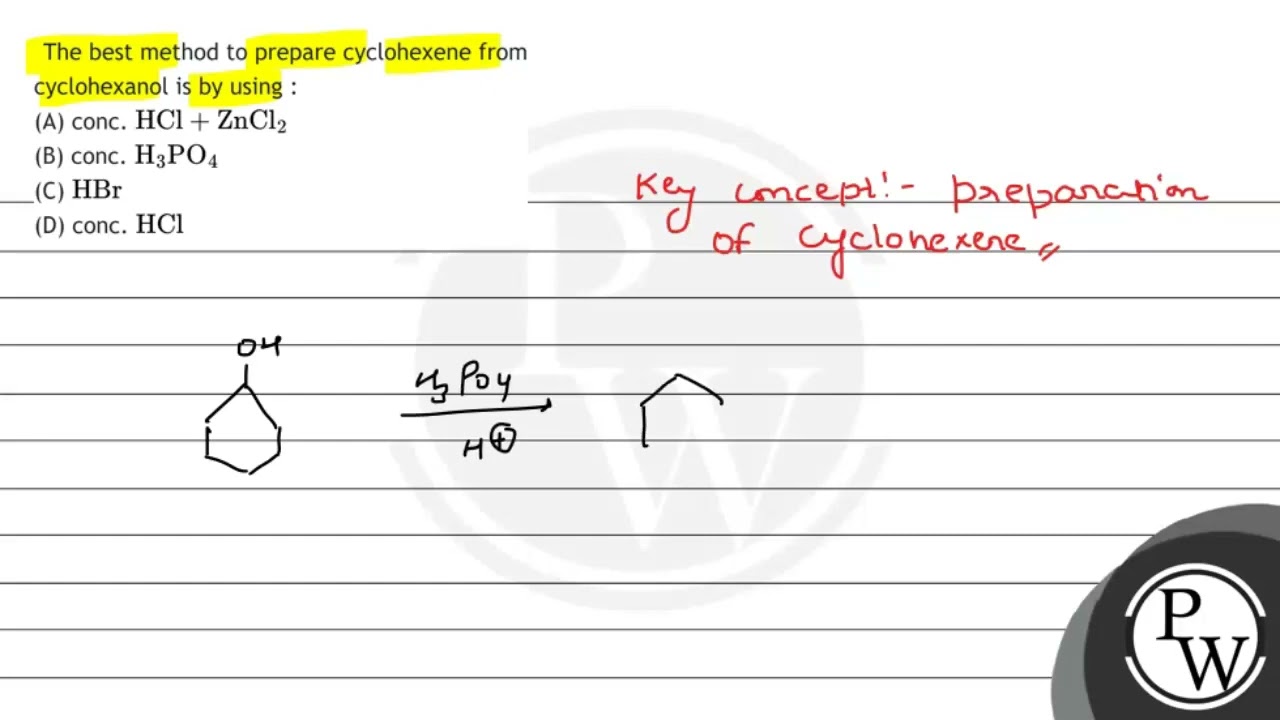 The best method to prepare cyclohexene from
cyclohexanol is by using :
(A) conc. HCl + ZnCl₂
(B) conc. H₃PO₄
(C) HBr
(D) conc. HCl
Key concept:- preparation
of cyclohexene
OH
H₃PO₄
H⊕
PW
P
W